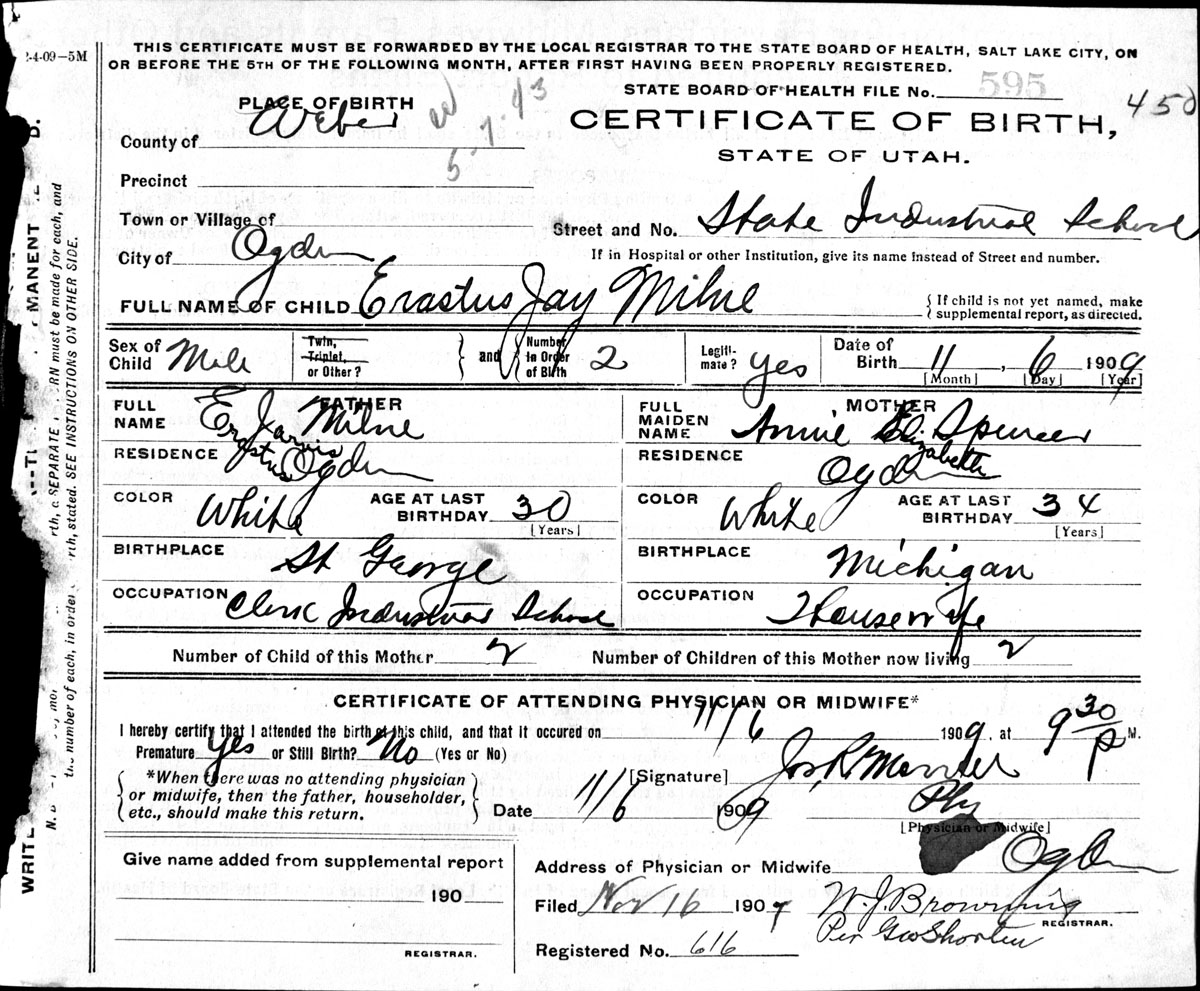 2-4-09-5M
THIS CERTIFICATE MUST BE FORWARDED BY THE LOCAL REGISTRAR TO THE STATE BOARD OF HEALTH, SALT LAKE CITY, ON
OR BEFORE THE 5TH OF THE FOLLOWING MONTH, AFTER FIRST HAVING BEEN PROPERLY REGISTERED.
STATE BOARD OF HEALTH FILE No. 595
450
PLACE OF BIRTH
5.7.43
CERTIFICATE OF BIRTH,
STATE OF UTAH.
County of Weber
Precinct
Town or Village of
Street and No. State Industrial School
City of Ogden
If in Hospital or other Institution, give its name instead of Street and number.
FULL NAME OF CHILD Erastus Jay Milne
{If child is not yet named, make
supplemental report, as directed.
Sex of Child Male
Twin, Triplet, or Other?
and Number in Order of Birth 2
Legitimate? Yes
Date of Birth 11, 6 1909
[Month] [Day] [Year]
FATHER
FULL NAME Erastus Jarvis Milne
RESIDENCE Ogden
COLOR White AGE AT LAST BIRTHDAY 30
[Years]
BIRTHPLACE St George
OCCUPATION Clerk Industrial School
MOTHER
FULL MAIDEN NAME Annie Elizabeth Spencer
RESIDENCE Ogden
COLOR White AGE AT LAST BIRTHDAY 34
[Years]
BIRTHPLACE Michigan
OCCUPATION Housewife
Number of Child of this Mother 2 Number of Children of this Mother now living 2
CERTIFICATE OF ATTENDING PHYSICIAN OR MIDWIFE*
I hereby certify that I attended the birth of this child, and that it occured on 11/6 1909, at 9 30/P M.
Premature Yes or Still Birth? No (Yes or No)
*When there was no attending physician
or midwife, then the father, householder,
etc., should make this return.
[Signature] Jos. R. 
Phy
Date 11/6 1909
[Physician or Midwife]
Give name added from supplemental report
190
REGISTRAR.
Address of Physician or Midwife Ogden
Filed Nov 16 1909 W. J. Browning
REGISTRAR.
Per Geo Shorten
Registered No. 616
SEE INSTRUCTIONS ON OTHER SIDE.